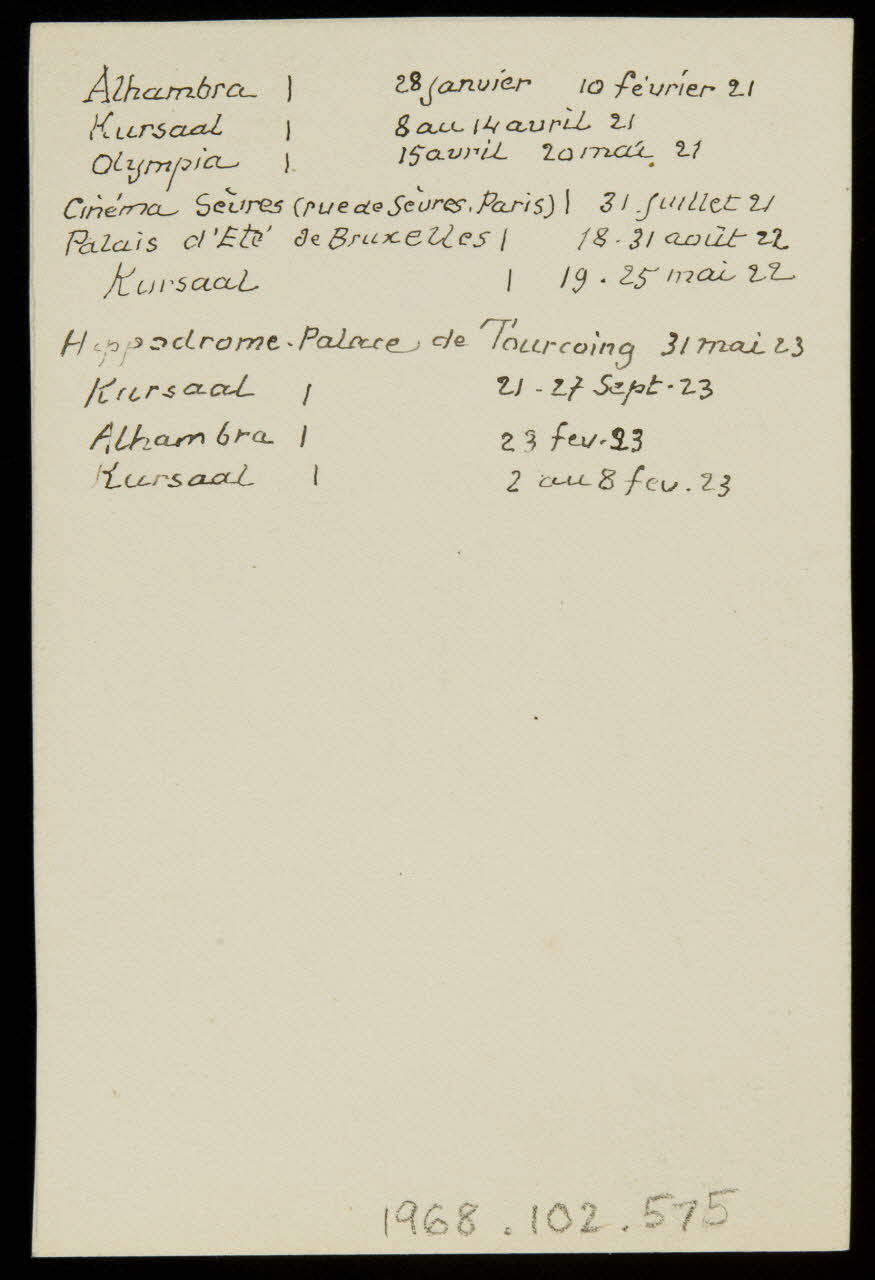 Alhambra | 28 janvier 10 février 21
Kursaal | 8 au 14 avril 21
Olympia | 15 avril 20 mai 21
Cinéma Sèvres (rue de Sèvres. Paris) | 31 juillet 21
Palais d'Eté de Bruxelles | 18. 31 août 22
Kursaal | 19. 25 mai 22
Hippodrome. Palace de Tourcoing 31 mai 23
Kursaal | 21 - 27 Sept. 23
Alhambra | 23 fev. 23
Kursaal | 2 au 8 fev. 23
1968.102.575